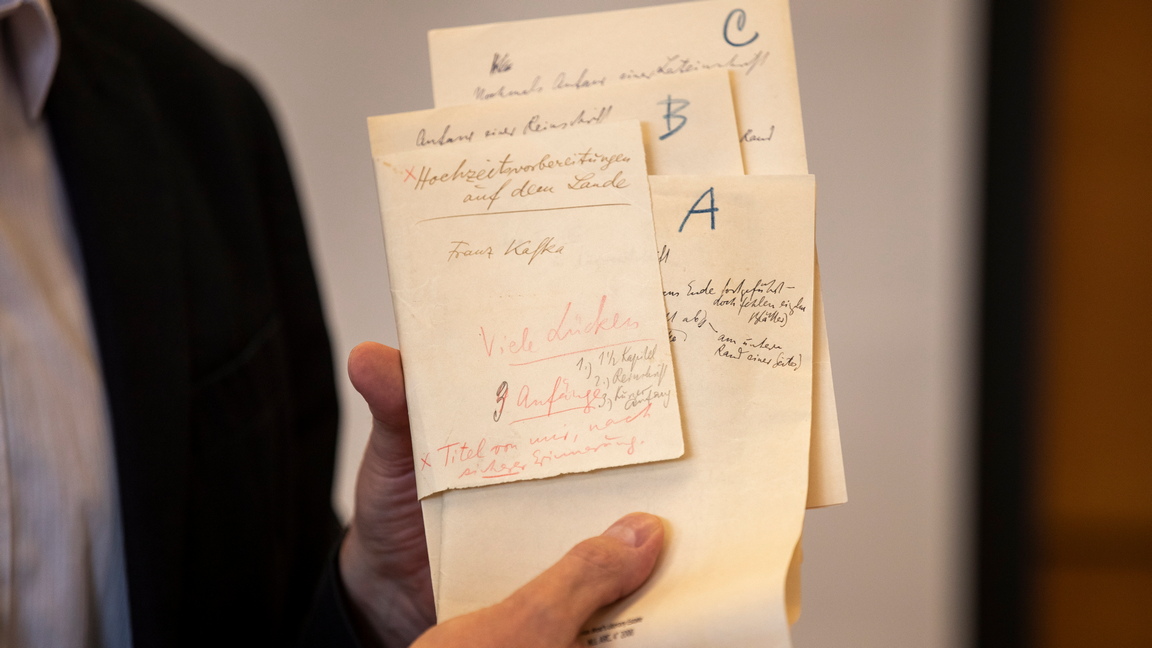 C
Nochmals Anfang einer Lateinschrift
Rand
B
Anfang einer Reinschrift
A
ens Ende fortgeführt –
doch fehlen einzelne
Blätter)
am untern
Rand einer Seite)
× Hochzeitsvorbereitungen
auf dem Lande
Franz Kafka
Viele Lücken
3 Anfänge
1.) 1½ Kapitel
2.) Reinschrift
3.)
Anfang
× Titel von mir, nach
sicherer Erinnerung.